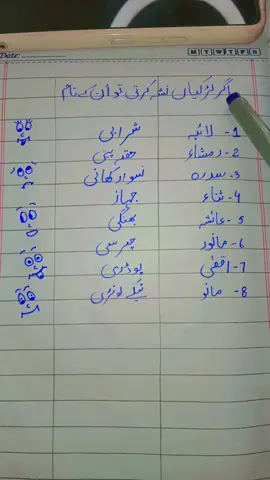 Date:
M T W T F S
اگر لڑکیاں نشہ کرتی تو ان کے نام
1- لائبہ شرابی
2- رمشاء حقہ پینی
3- سدرہ نسوار کھانی
4- ثناء جہاز
5- عائشہ بھنگی
6- مانور چرسی
7- اقطی پوڈری
8- مانو ٹیکے لونڑی